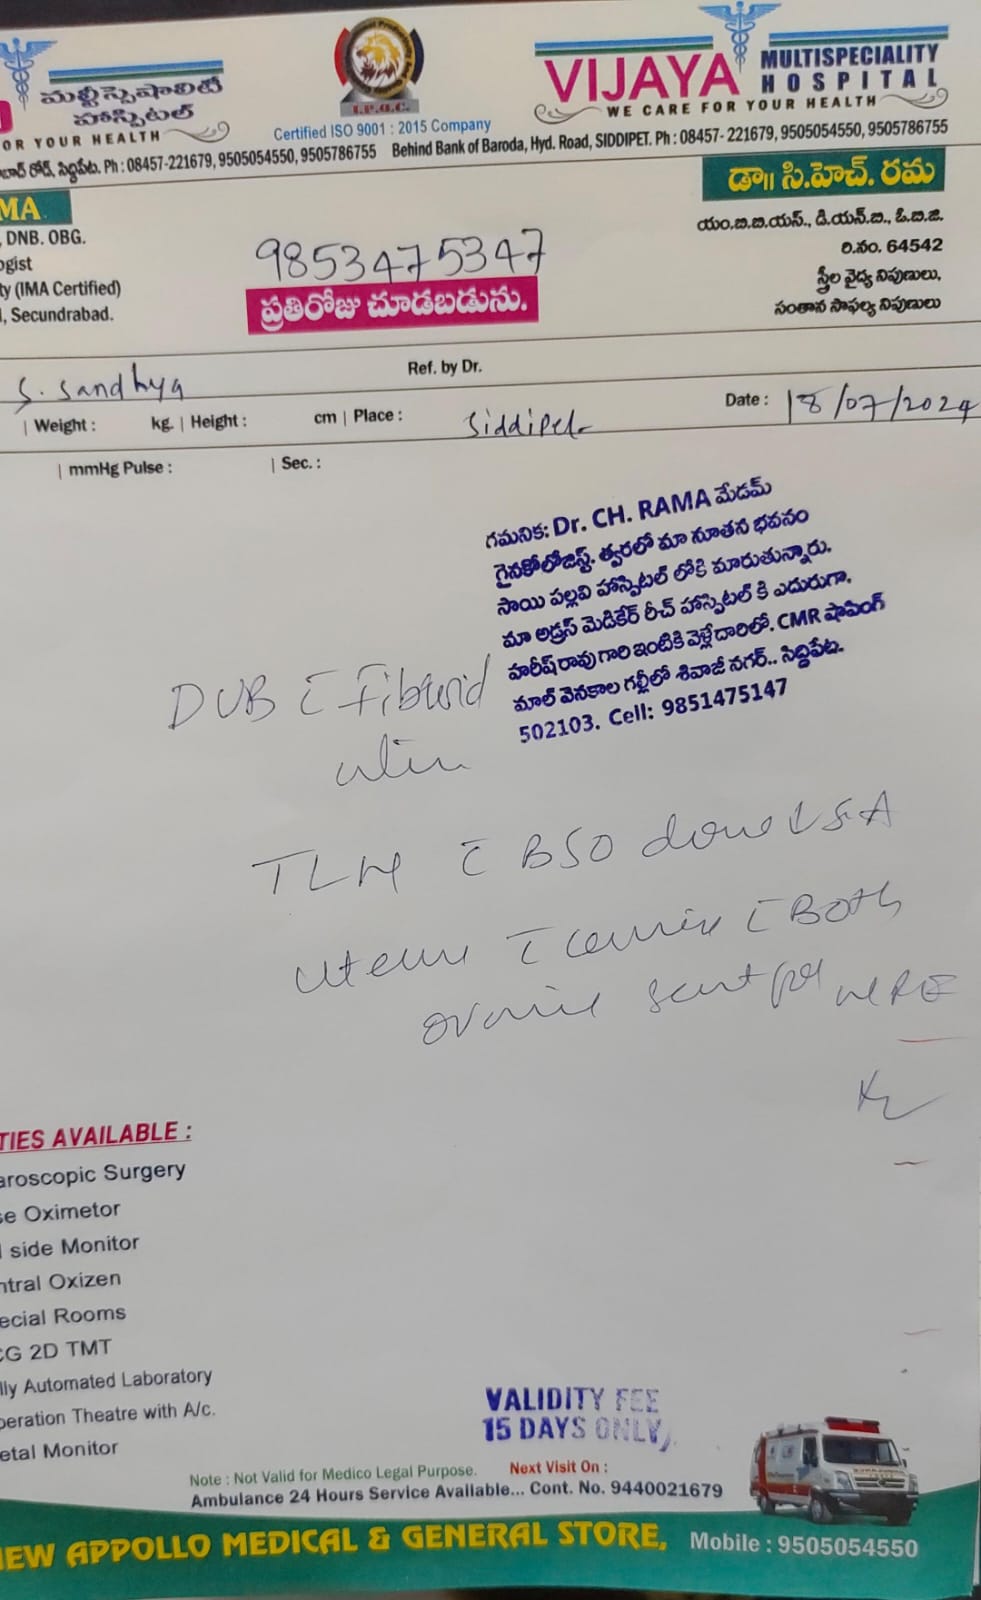 మల్టీస్పెషాలిటీ
హాస్పిటల్
OR YOUR HEALTH
I.P.Q.C.
Certified ISO 9001 : 2015 Company
VIJAYA MULTISPECIALITY
HOSPITAL
WE CARE FOR YOUR HEALTH
బాద్ రోడ్, సిద్దిపేట. Ph : 08457-221679, 9505054550, 9505786755 Behind Bank of Baroda, Hyd. Road, SIDDIPET. Ph : 08457- 221679, 9505054550, 9505786755
MA
, DNB. OBG.
ogist
ty (IMA Certified)
l, Secundrabad.
98534 75347
ప్రతిరోజు చూడబడును.
డా॥ సి.హెచ్. రమ
యం.బి.బి.యస్., డి.యన్.బి., ఓ.బి.జి.
రి.నం. 64542
స్త్రీల వైద్య నిపుణులు,
సంతాన సాఫల్య నిపుణులు
S. Sandhya
Ref. by Dr.
| Weight : kg. | Height : cm | Place : Siddipet
Date : 18/07/2024
| mmHg Pulse : | Sec. :
గమనిక: Dr. CH. RAMA మేడమ్
గైనకోలోజిస్ట్. త్వరలో మా నూతన భవనం
సాయి పల్లవి హాస్పిటల్ లోకి మారుతున్నారు.
మా అడ్రస్ మెడికేర్ రీచ్ హాస్పిటల్ కి ఎదురుగా,
హరీష్ రావు గారి ఇంటికి వెళ్లేదారిలో. CMR షాపింగ్
మాల్ వెనకాల గల్లీలో శివాజీ నగర్.. సిద్దిపేట.
502103. Cell: 9851475147
DUB c̄ Fibroid
uterus
TLH c̄ BSO done
uterus c̄ cervix c̄ Both
ovaries sent for HPE
TIES AVAILABLE :
aroscopic Surgery
se Oximetor
l side Monitor
ntral Oxizen
ecial Rooms
CG 2D TMT
lly Automated Laboratory
peration Theatre with A/c.
etal Monitor
VALIDITY FEE
15 DAYS ONLY,
Note : Not Valid for Medico Legal Purpose. Next Visit On :
Ambulance 24 Hours Service Available... Cont. No. 9440021679
NEW APPOLLO MEDICAL & GENERAL STORE, Mobile : 9505054550